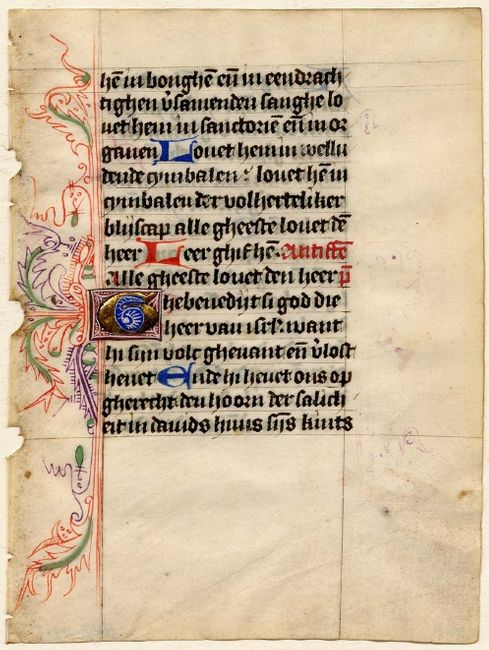 hē in bonghē eñ in eendrach
tighen v̄samenden sanghe lo
uet hem in sanctoriē eñ in or
ganen Louet hem in wellu
dende cymbalen : louet hē in
cymbalen der volherteliker
blijscap alle gheeste louet dē
heer Heer ghif hē. Antiffē
Alle gheeste louet den heer p̄
Ghebenedijt si god die
heer van isrl̄. want
hi sijn volc ghevant eñ v̄lost
heuet Ende hi heuet ons op
gherecht den hoorn der salich
eit in dauids huus sijs kints